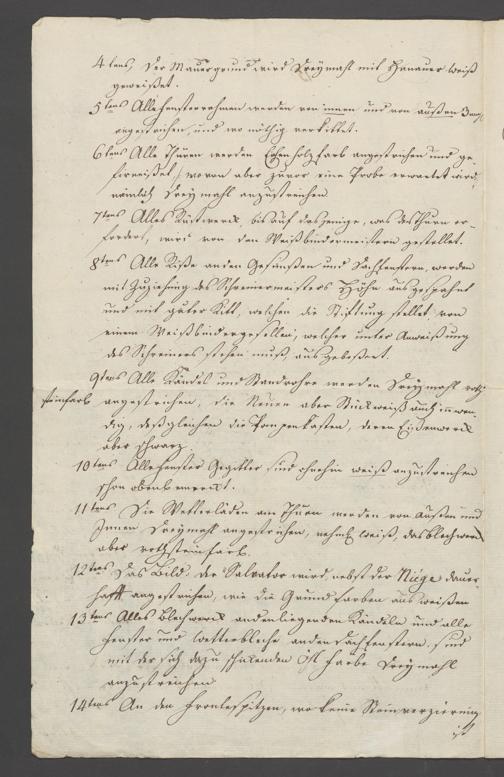 4tens, der Mauergrund wird Dreymahl mit Hanauer weiß
geweißet.
5tens Alle fensterrahmen werden von innen und von außen 3mahl
angestrichen, und wo nöthig verkittet.
6tens Alle Thüren werden Eichenholzfarb angestrichen und ge-
firneißet, wovon aber zuvor eine Probe erwartet wird,
nämlich Dreymahl anzustreichen
7tens Alles Rüstwerck, bis auf dasjenige, was der Thurn er-
fordert, wird von den Weißbindermeistern gestellet.
8tens Alle Riße an den Gesimßen und Dachfenstern, werden
mit Zuziehung des Schreinermeisters Höhn ausgespahnt
und mit guter Kitt, welchen die Stiftung stellet, von
einem Weißbindergesellen, welcher unter Anweißung
des Schreiners stehen muß, ausgebeßert.
9tens Alle Kändel und Standrohre werden Dreymahl roth-
steinfarb angestrichen, die Neuen aber Stückweiß auch inwen-
dig, deßgleichen die Pompenkasten, deren Eißenwerck
aber schwarz.
10tens Alle fenster Gegitter sind ohnehin weiß anzustreichen
schon oben bemerckt.
11tens Die Wetterläden am Thurn werden von Außen und
Innen Dreymahl angestrichen, nehml. weiß, das blechwerck
aber rothsteinfarb.
12tens Das Bild, der Salvator wird, nebst der Niege dauer-
haft angestrichen, wie die Grundfarben ausweißen
13tens Alles Blechwerck an den liegenden Kändele und alle
fenster und wetterbleche an den Dachfenstern, sind
mit der sich dazu schickenden Öhl farbe Dreymahl
anzustreichen
14tens An den frontespitzen, wo keine Steinverzierung
ist